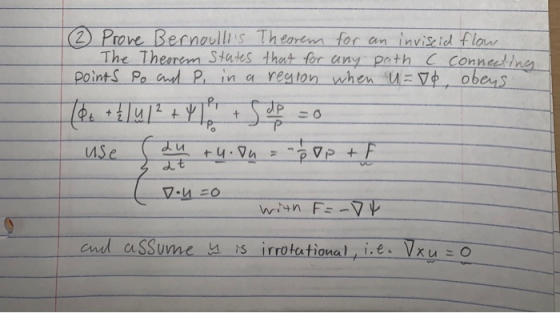 ② Prove Bernoulli's Theorem for an inviscid flow
The Theorem States that for any path C connecting
points P₀ and P₁ in a region when u = ∇ϕ, obeys
(ϕₜ + ½|u|² + Ψ|ᴾ¹ₚ₀ + ∫ dp/p = 0
use { du/dt + u·∇u = -1/p ∇p + F
∇·u = 0
with F = -∇Ψ
and assume u is irrotational, i.e. ∇×u = 0